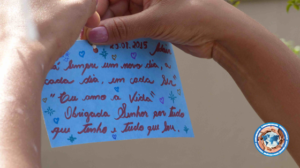 03.01.2018
sempre um novo dia, a
cada dia, em cada ser"
"Eu amo a Vida"
Obrigada Senhor por tudo
que tenho e tudo que sou.